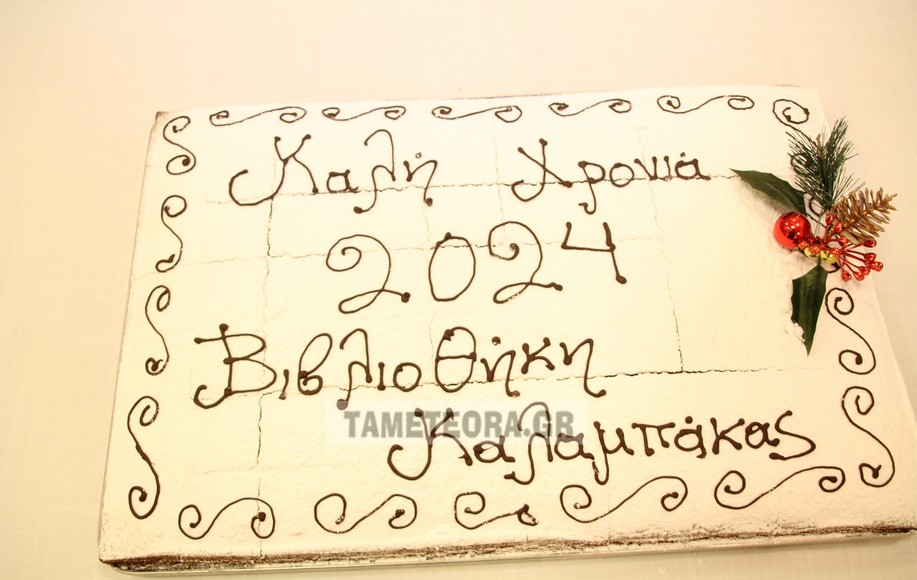 Καλή Χρονιά
2024
Βιβλιοθήκη
TAMETEORA.GR
Καλαμπάκας